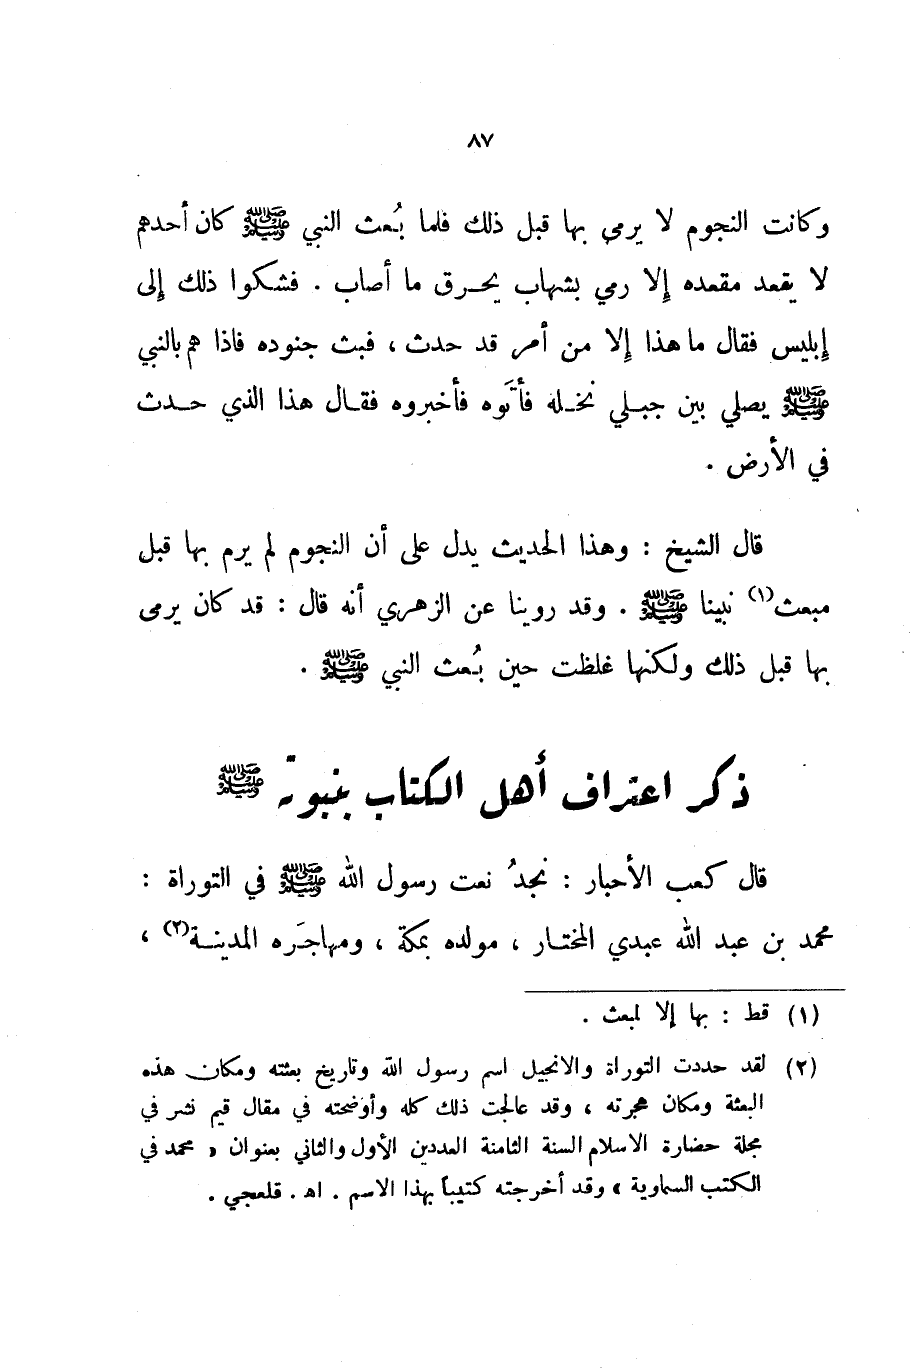 ٨٧
وكانت النجوم لا يرمى بها قبل ذلك فلما بُعث النبي ﷺ كان أحدهم
لا يقعد مقعده إلا رمي بشهاب يحرق ما أصاب . فشكوا ذلك إلى
إبليس فقال ما هذا إلا من أمر قد حدث ، فبث جنوده فاذا هم بالنبي
ﷺ يصلي بين جبلي نخله فأتَوه فأخبروه فقال هذا الذي حدث
في الأرض .
قال الشيخ : وهذا الحديث يدل على أن النجوم لم يرم بها قبل
مبعث(١) نبينا ﷺ . وقد روينا عن الزهري أنه قال : قد كان يرمى
بها قبل ذلك ولكنها غلظت حين بُعث النبي ﷺ .
ذكر اعتراف أهل الكتاب بنبوته ﷺ
قال كعب الأحبار : نجدُ نعت رسول الله ﷺ في التوراة :
محمد بن عبد الله عبدي المختار ، مولده بمكة ، ومهاجَره المدينة(٢) ،
(١) قط : بها إلا لمبعث .
(٢) لقد حددت التوراة والانجيل اسم رسول الله وتاريخ بعثته ومكان هذه
البعثة ومكان هجرته ، وقد عالجت ذلك كله وأوضحته في مقال قيم نشر في
مجلة حضارة الاسلام السنة الثامنة العددين الأول والثاني بعنوان « محمد في
الكتب السماوية » وقد أخرجته كتيباً بهذا الاسم . اهـ . قلعجي .